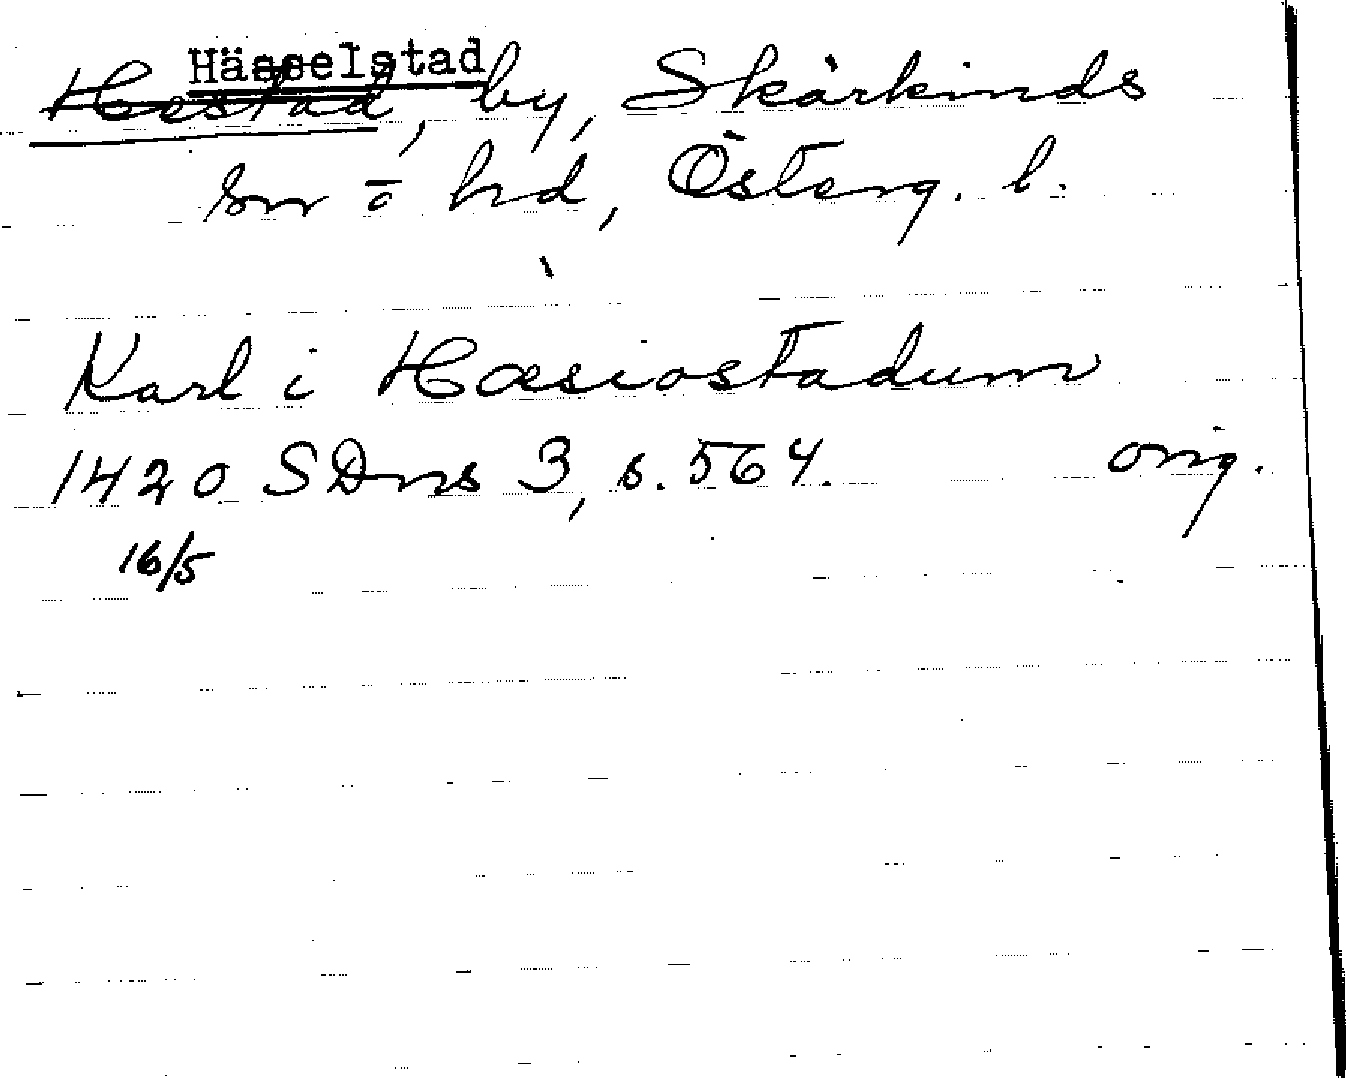 Hässelstad
Hestad, by, Skärkinds
sn o hd, Österg. l.
Karl i Hæsiostadum
1420 SDns 3, s. 564. orig.
16/5